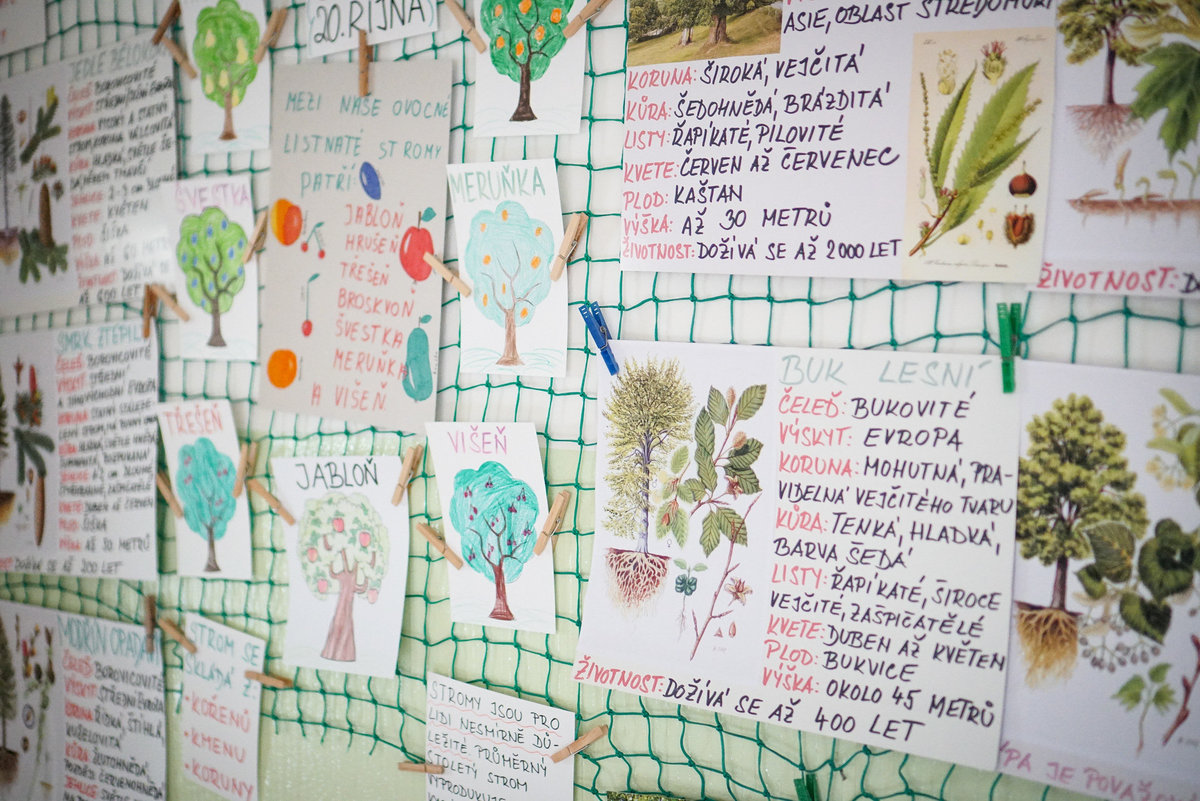 (20. ŘÍJNA)
JEDLE BĚLOK
ČELEĎ: BOROVICOVITÉ
KVETE: KVĚTEN
PLOD: ŠIŠKA
ŠVESTKA
MEZI NAŠE OVOCNÉ
LISTNATÉ STROMY
PATŘÍ:
JABLOŇ
HRUŠEŇ
TŘEŠEŇ
BROSKVOŇ
ŠVESTKA
MERUŇKA
A VIŠEŇ.
MERUŇKA
ASIE, OBLAST STŘEDOMOŘÍ
KORUNA: ŠIROKÁ, VEJČITÁ
KŮRA: ŠEDOHNĚDÁ, BRÁZDITÁ
LISTY: ŘAPÍKATÉ, PILOVITÉ
KVETE: ČERVEN AŽ ČERVENEC
PLOD: KAŠTAN
VÝŠKA: AŽ 30 METRŮ
ŽIVOTNOST: DOŽÍVÁ SE AŽ 2000 LET
ŽIVOTNOST:
SMRK ZTEPIL
ČELEĎ: BOROVICOVITÉ
VÝSKYT: STŘEDNÍ
PLOD: ŠIŠKA
VÝŠKA: AŽ 50 METRŮ
DOŽÍVÁ SE AŽ 200 LET
TŘEŠEŇ
JABLOŇ
VIŠEŇ
BUK LESNÍ
ČELEĎ: BUKOVITÉ
VÝSKYT: EVROPA
KORUNA: MOHUTNÁ, PRA-
VIDELNÁ VEJČITÉHO TVARU
KŮRA: TENKÁ, HLADKÁ,
BARVA ŠEDÁ
LISTY: ŘAPÍKATÉ, ŠIROCE
VEJČITÉ, ZAŠPIČATĚLÉ
KVETE: DUBEN AŽ KVĚTEN
PLOD: BUKVICE
VÝŠKA: OKOLO 45 METRŮ
ŽIVOTNOST: DOŽÍVÁ SE AŽ 400 LET
MODŘÍN OPADAV
ČELEĎ: BOROVICOVITÉ
VÝSKYT: STŘEDNÍ EVROPA
KORUNA: ŘÍDKÁ, ŠTÍHLÁ,
KUŽELOVITÁ
KŮRA: ŽLUTOHNĚDÁ,
POZDĚJI ČERVENOHNĚDÁ
STROM SE
SKLÁDÁ Z:
• KOŘENŮ
• KMENU
• KORUNY
STROMY JSOU PRO
LIDI NESMÍRNĚ DŮ-
LEŽITÉ PRŮMĚRNÝ
STOLETÝ STROM
VYPRODUKUJE
PA JE POVAŽ